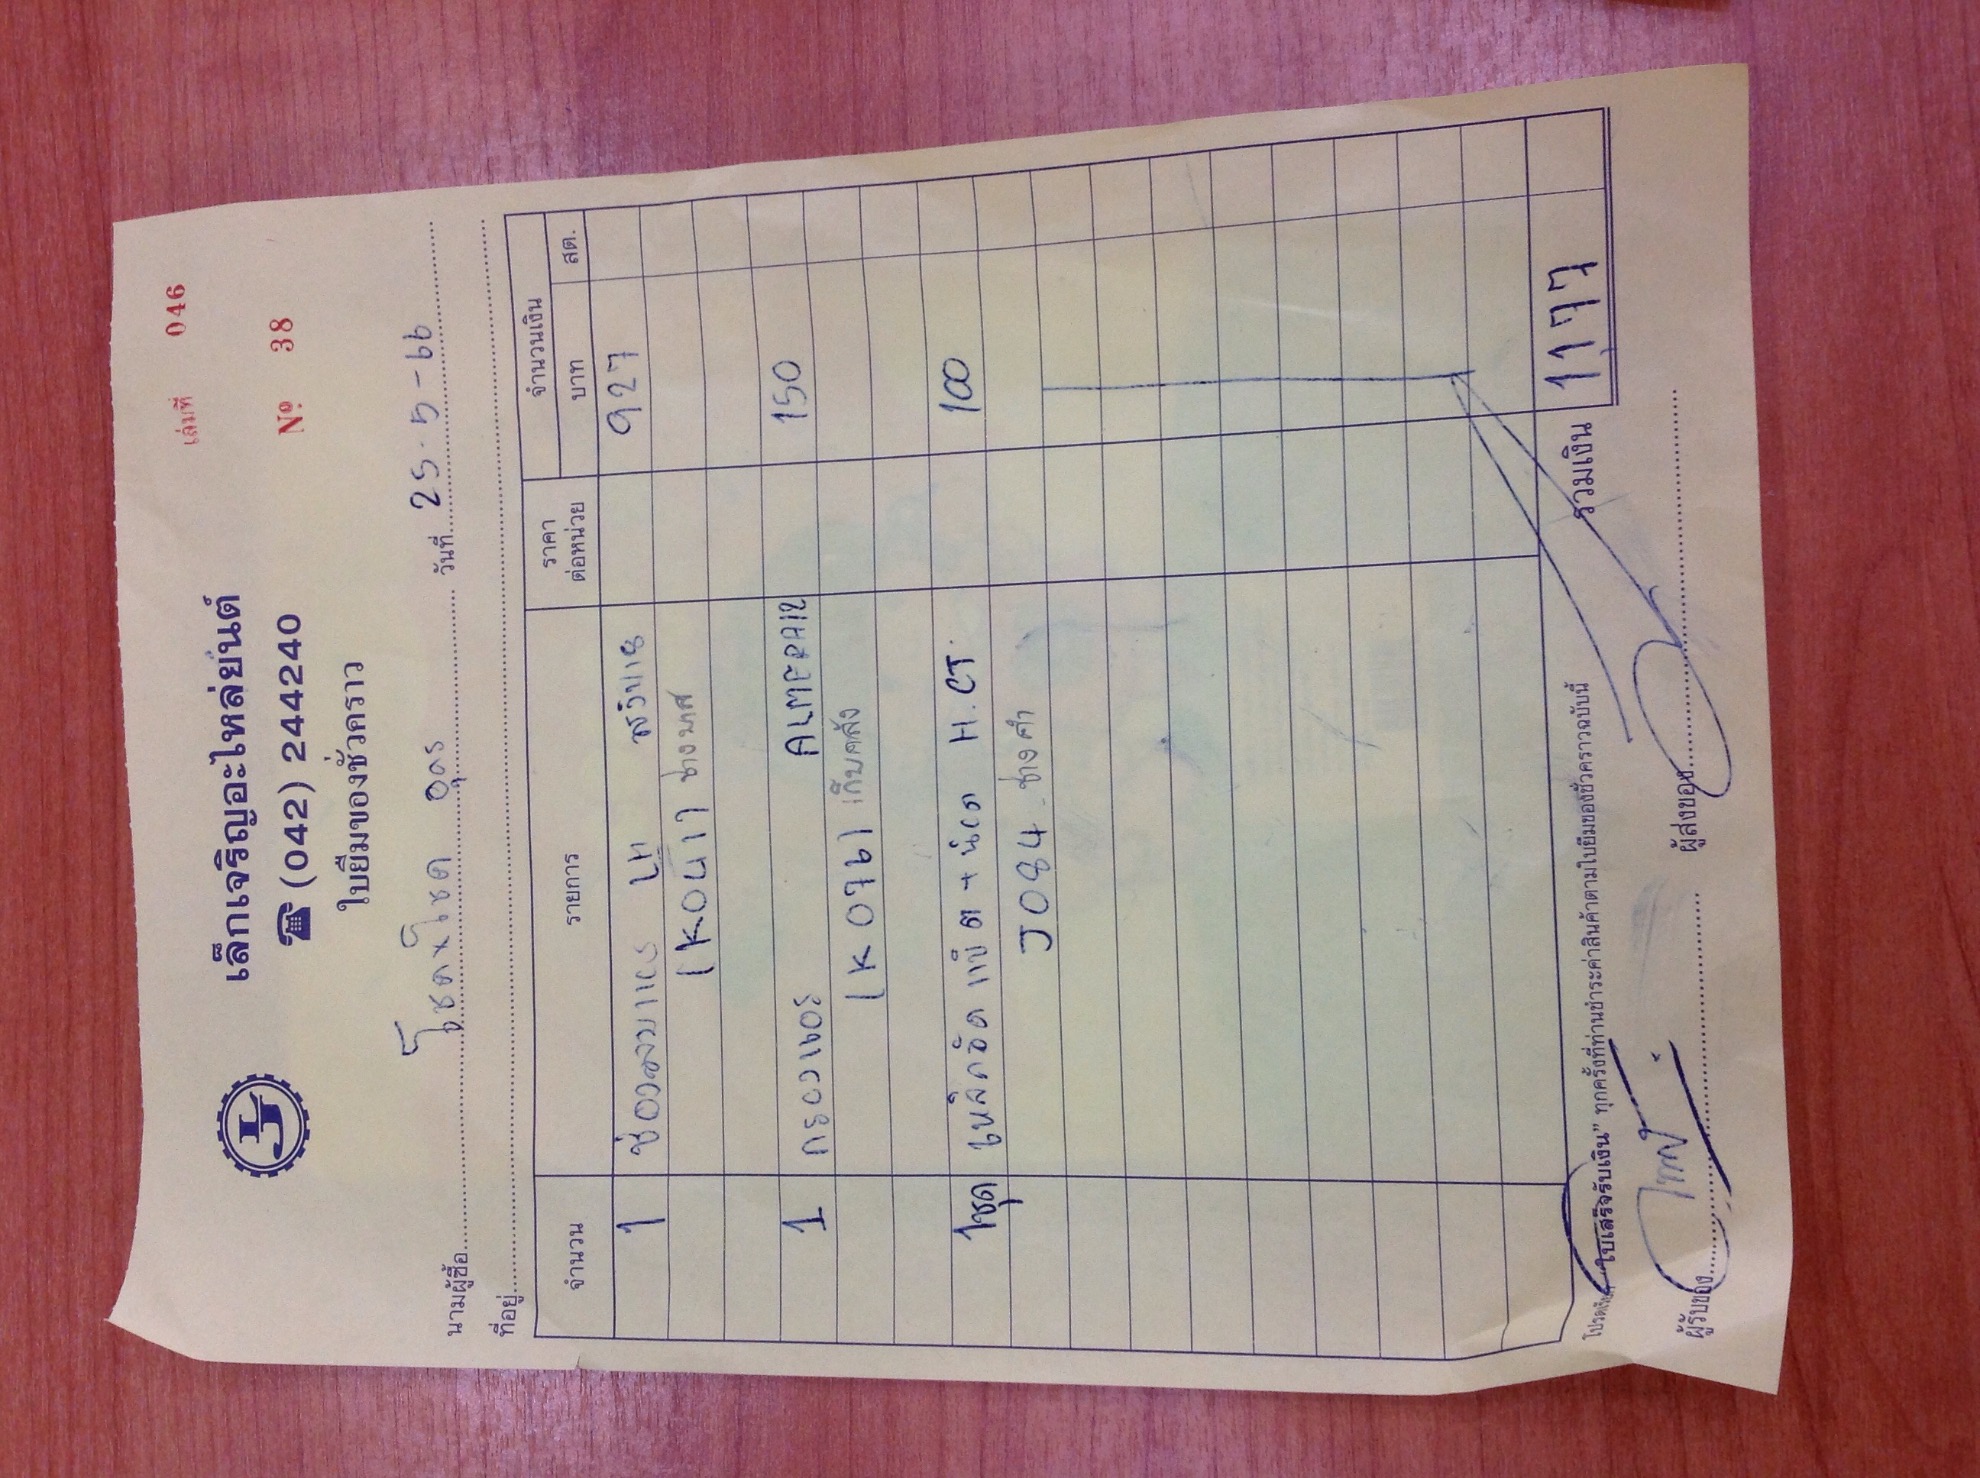 เล่มที่ 046
เล็กเจริญอะไหล่ยนต์
☎ (042) 244240
Nº 38
ใบยืมของชั่วคราว
นามผู้ซื้อ โชค x โชค อุดร วันที่ 25-5-66
ที่อยู่
จำนวน รายการ ราคาต่อหน่วย จำนวนเงิน
บาท สต.
1 927
1 กรองเบอร์ ALMERA 150
เก็บคลัง
1ชุด เหล็กอัด แป๊ด + น๊อต H.CT. 100
J084 ช่างคำ
รวมเงิน 1177
"ใบเสร็จรับเงิน" ทุกครั้งที่ท่านชำระค่าสินค้าตามใบยืมของชั่วคราวฉบับนี้
ผู้รับของ ผู้ส่งของ